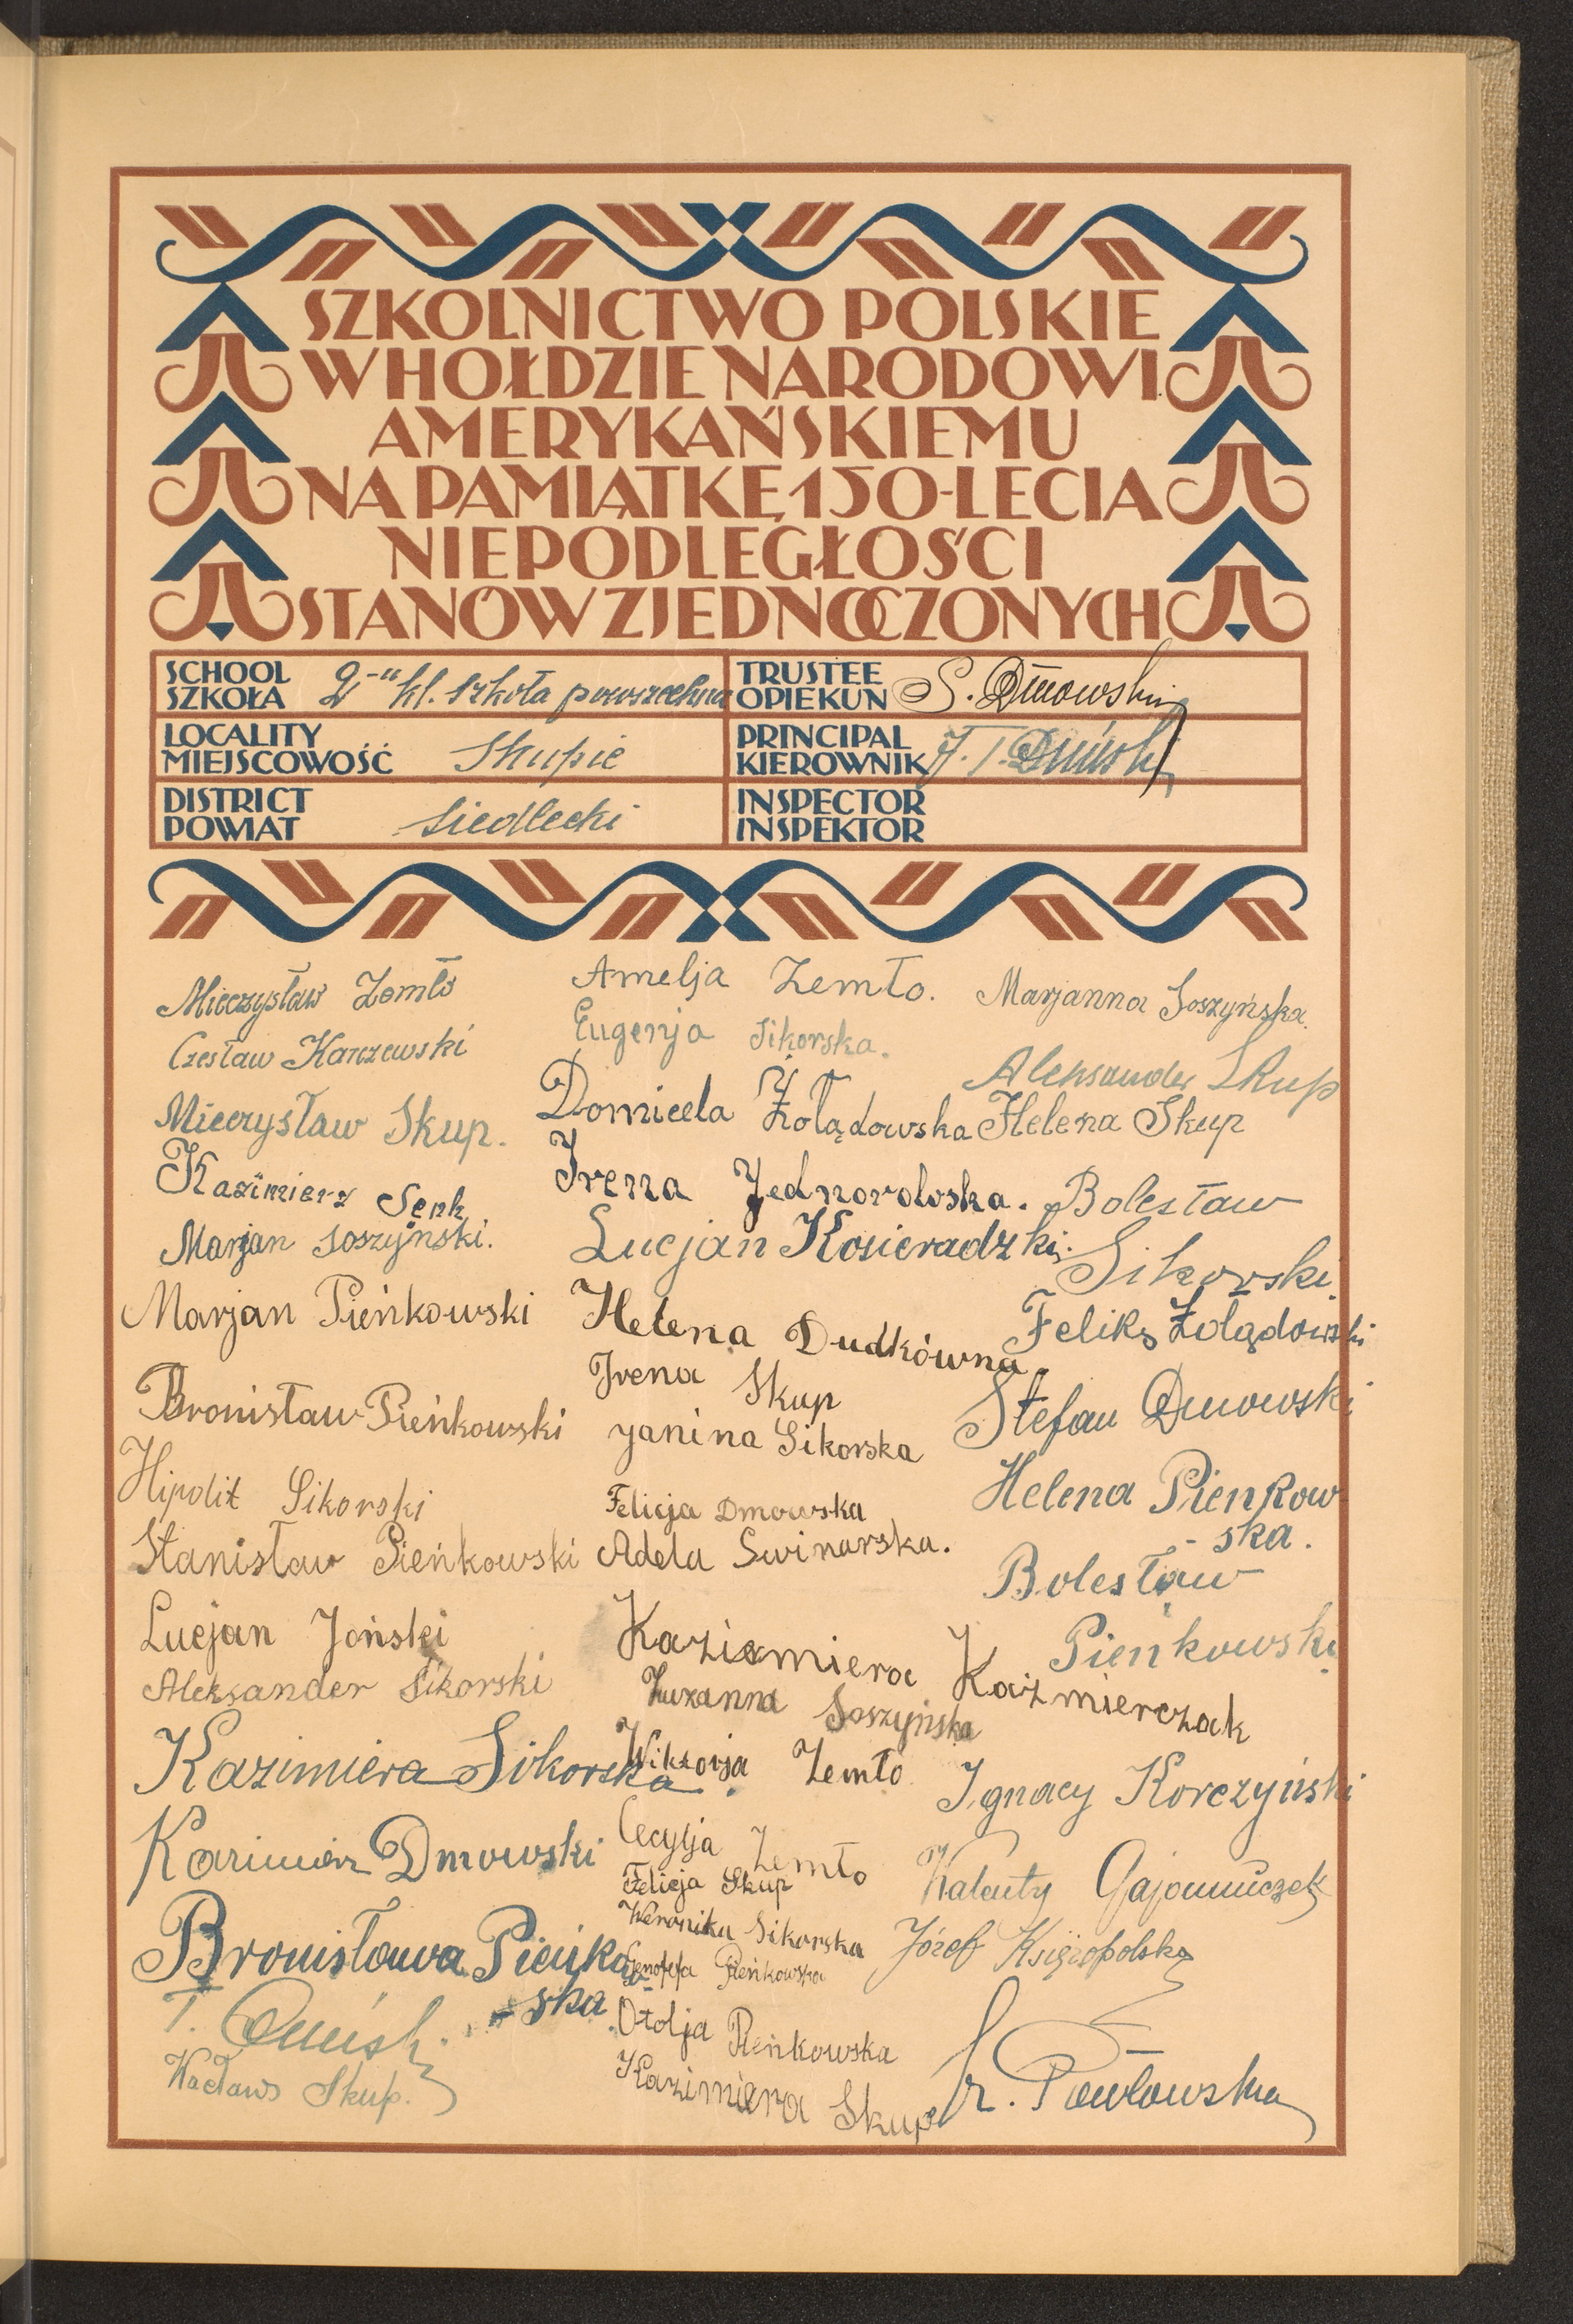 SZKOLNICTWO POLSKIE
W HOŁDZIE NARODOWI
AMERYKAŃSKIEMU
NA PAMIĄTKĘ 150-LECIA
NIEPODLEGŁOŚCI
STANÓW ZJEDNOCZONYCH
SCHOOL
SZKOŁA
2-u kl. szkoła powszechna
TRUSTEE
OPIEKUN
S. Dmowski
LOCALITY
MIEJSCOWOŚĆ
Skupie
PRINCIPAL
KIEROWNIK
DISTRICT
POWIAT
Siedlecki
INSPECTOR
INSPEKTOR
Mieczysław Zemło
Czesław Karczewski
Mieczysław Skup.
Kazimierz Senk
Marjan Soszyński.
Marjan Pieńkowski
Bronisław Pieńkowski
Hipolit Sikorski
Stanisław Pieńkowski
Lucjan Joński
Aleksander Sikorski
Kazimiera Sikorska.
Kazimierz Dmowski
Bronisława Pieńkow
-ska.
T.
Wacław Skup.
Amelja Zemło.
Eugenja Sikorska.
Domicela Żołądowska
Irena Jednoroloska.
Lucjan Kosieradzki.
Helena Dudkówna.
Irena Skup
Janina Sikorska
Felicja Dmowska
Adela Swinarska.
Kazimiera Kaźmierczak
Zuzanna Soszyńska
Wiktorja Zemło
Cecylja Zemło
Felicja Skup
Weronika Sikorska
Genofefa Pieńkowska
Otolja Pieńkowska
Kazimiera Skup
Marjanna Soszyńska.
Aleksander Skup
Helena Skup
Bolesław
Sikorski.
Feliks Żołądowski
Stefan Dmowski
Helena Pienkow
-ska.
Bolesław
Pieńkowski
Ignacy Korczyński
Walenty Gajowniczek
Józef Księżopolski
Pawłowska